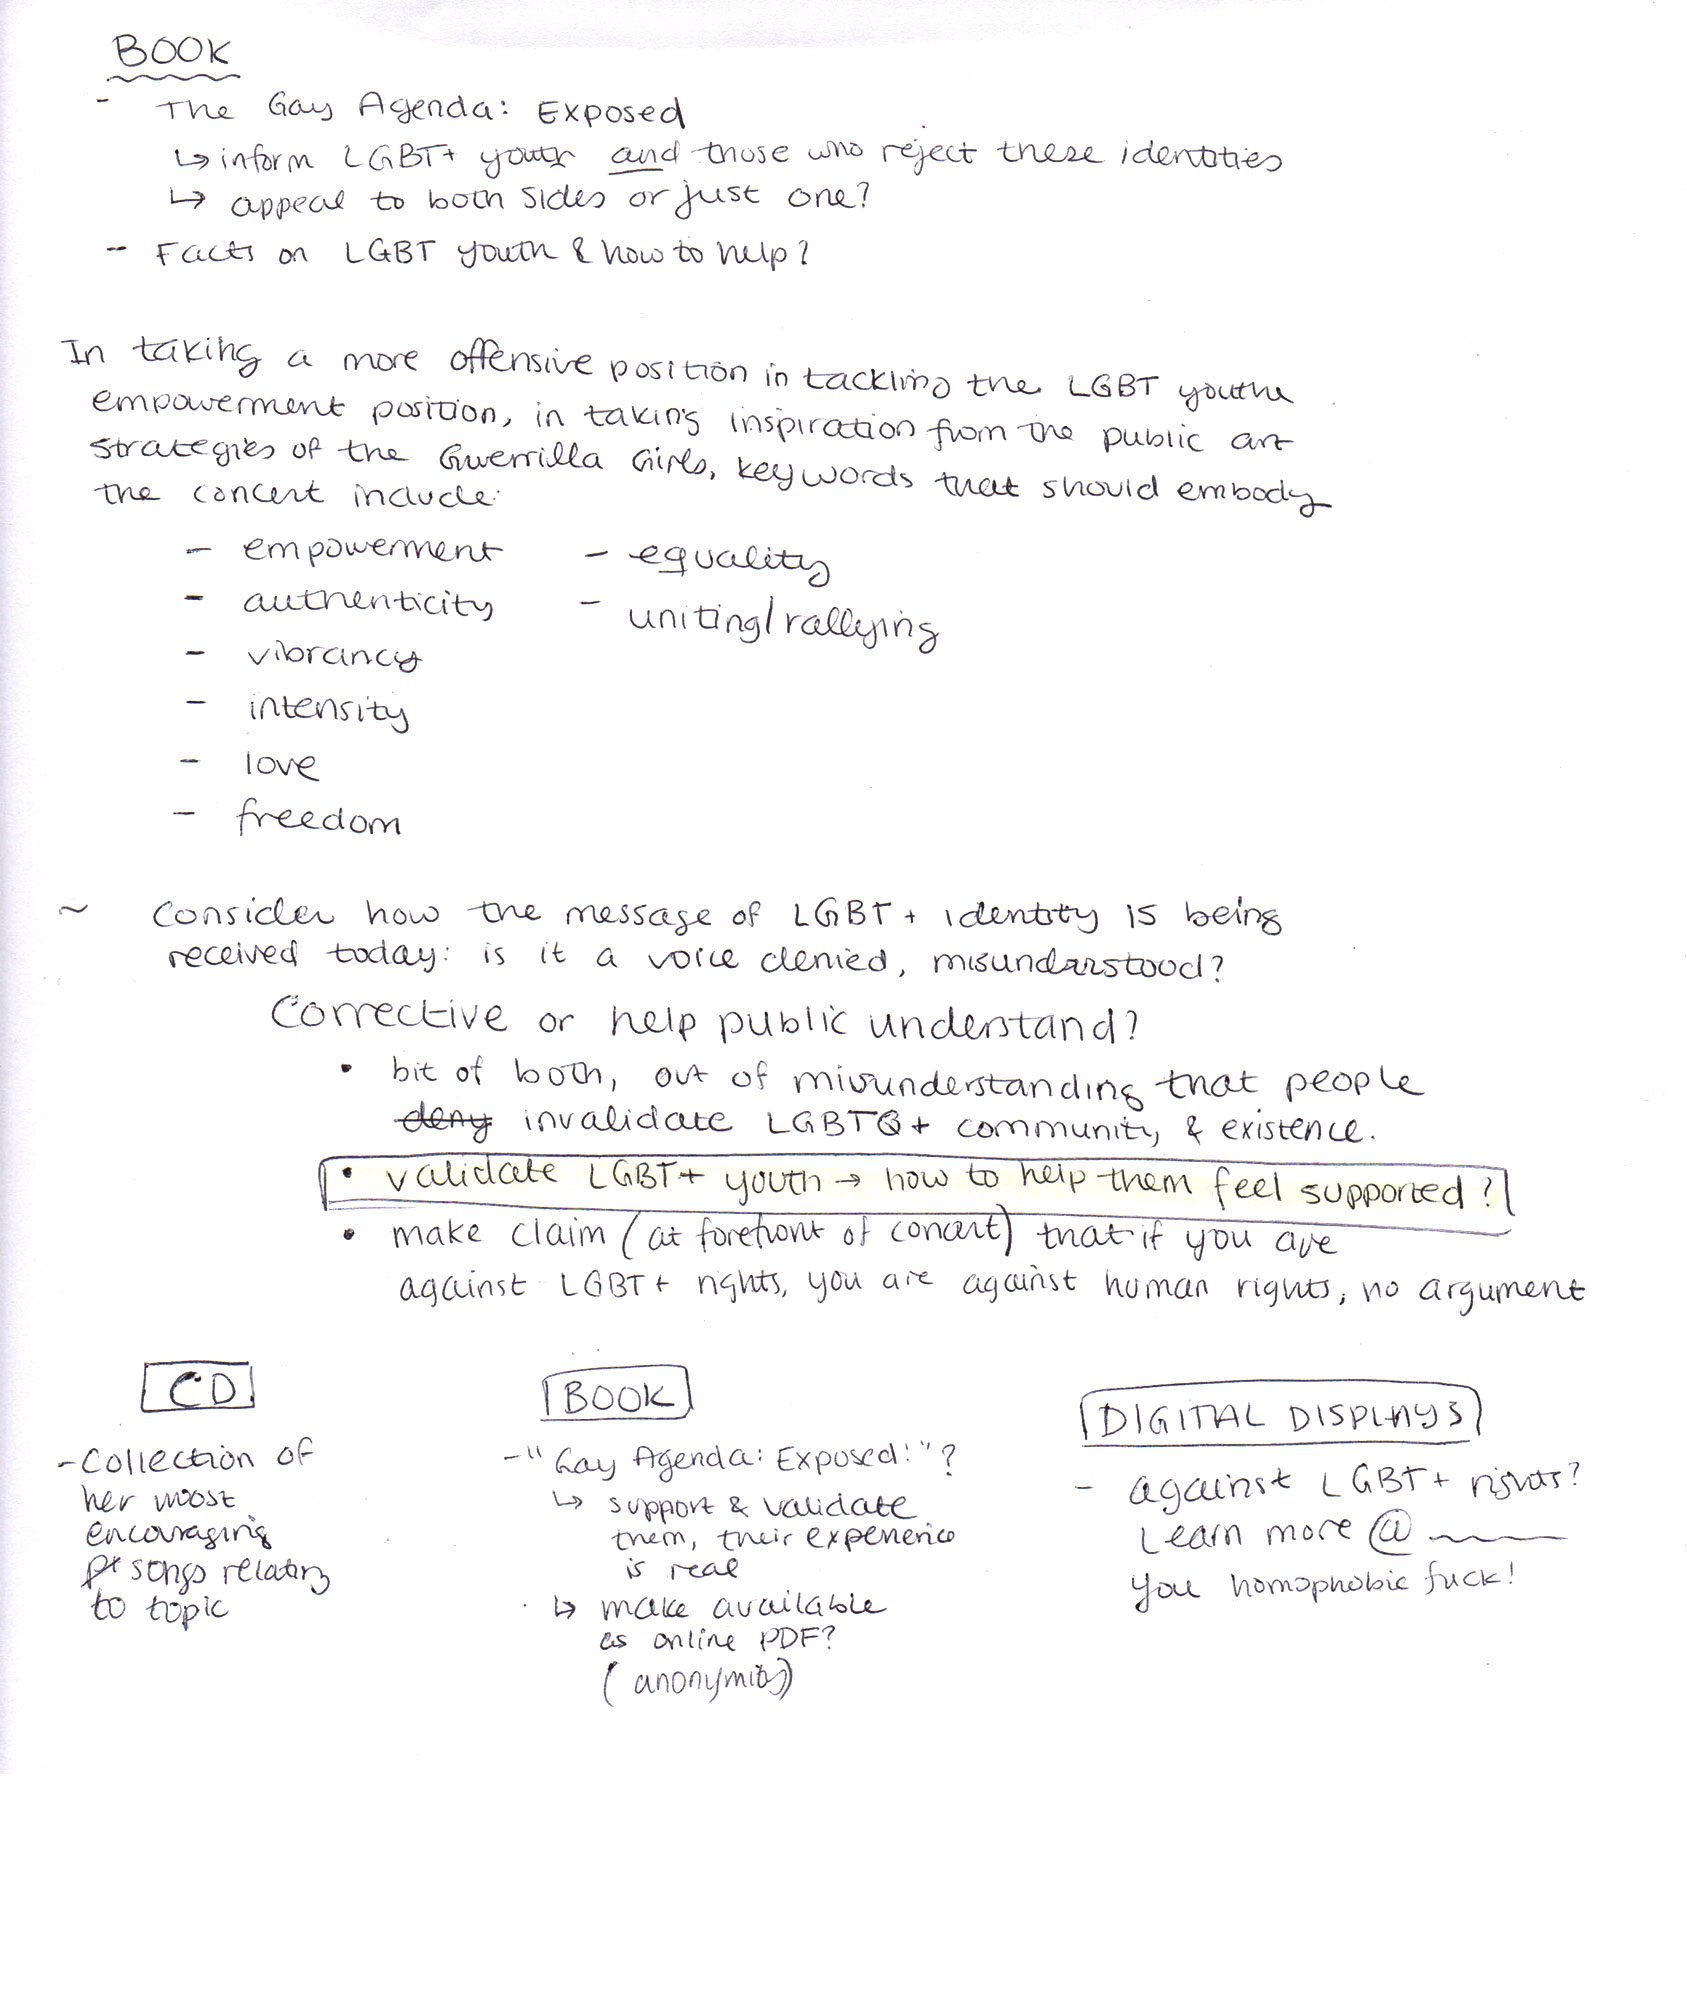 BOOK
- The Gay Agenda: Exposed
↳ inform LGBT+ youth and those who reject these identities
↳ appeal to both sides or just one?
- Facts on LGBT youth & how to help?
In taking a more offensive position in tackling the LGBT youth
empowerment position, in taking inspiration from the public art
strategies of the Guerrilla Girls, keywords that should embody
the concert include:
- empowerment
- authenticity
- vibrancy
- intensity
- love
- freedom
- equality
- uniting/rallying
~ Consider how the message of LGBT+ identity is being
received today: is it a voice denied, misunderstood?
Corrective or help public understand?
• bit of both, out of misunderstanding that people
deny invalidate LGBTQ+ community & existence.
• validate LGBT+ youth → how to help them feel supported?
• make claim (at forefront of concert) that if you are
against LGBT+ rights, you are against human rights, no argument
CD
- Collection of
her most
encouraging
songs relating
to topic
BOOK
- "Gay Agenda: Exposed!"?
↳ support & validate
them, their experience
is real
↳ make available
as online PDF?
(anonymity)
DIGITAL DISPLAYS
- against LGBT+ rights?
Learn more @ ______
you homophobic fuck!